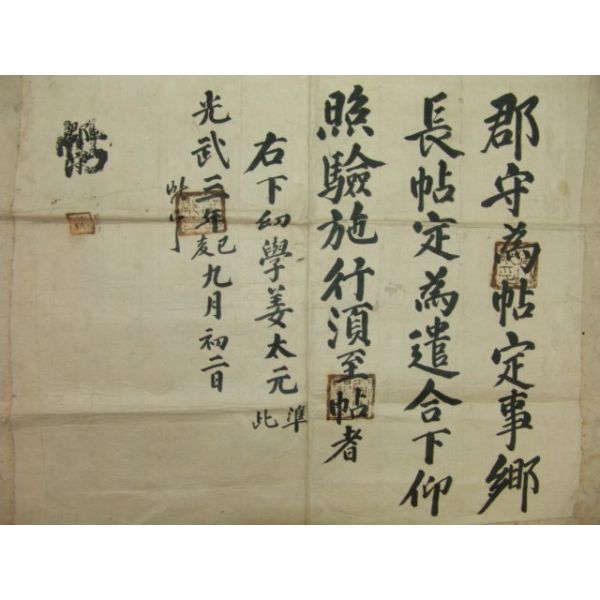 郡守為帖定事鄉
長帖定為遣合下仰
照驗施行湏至帖者
右下幼學姜太元 準此
光武三年己亥九月初二日